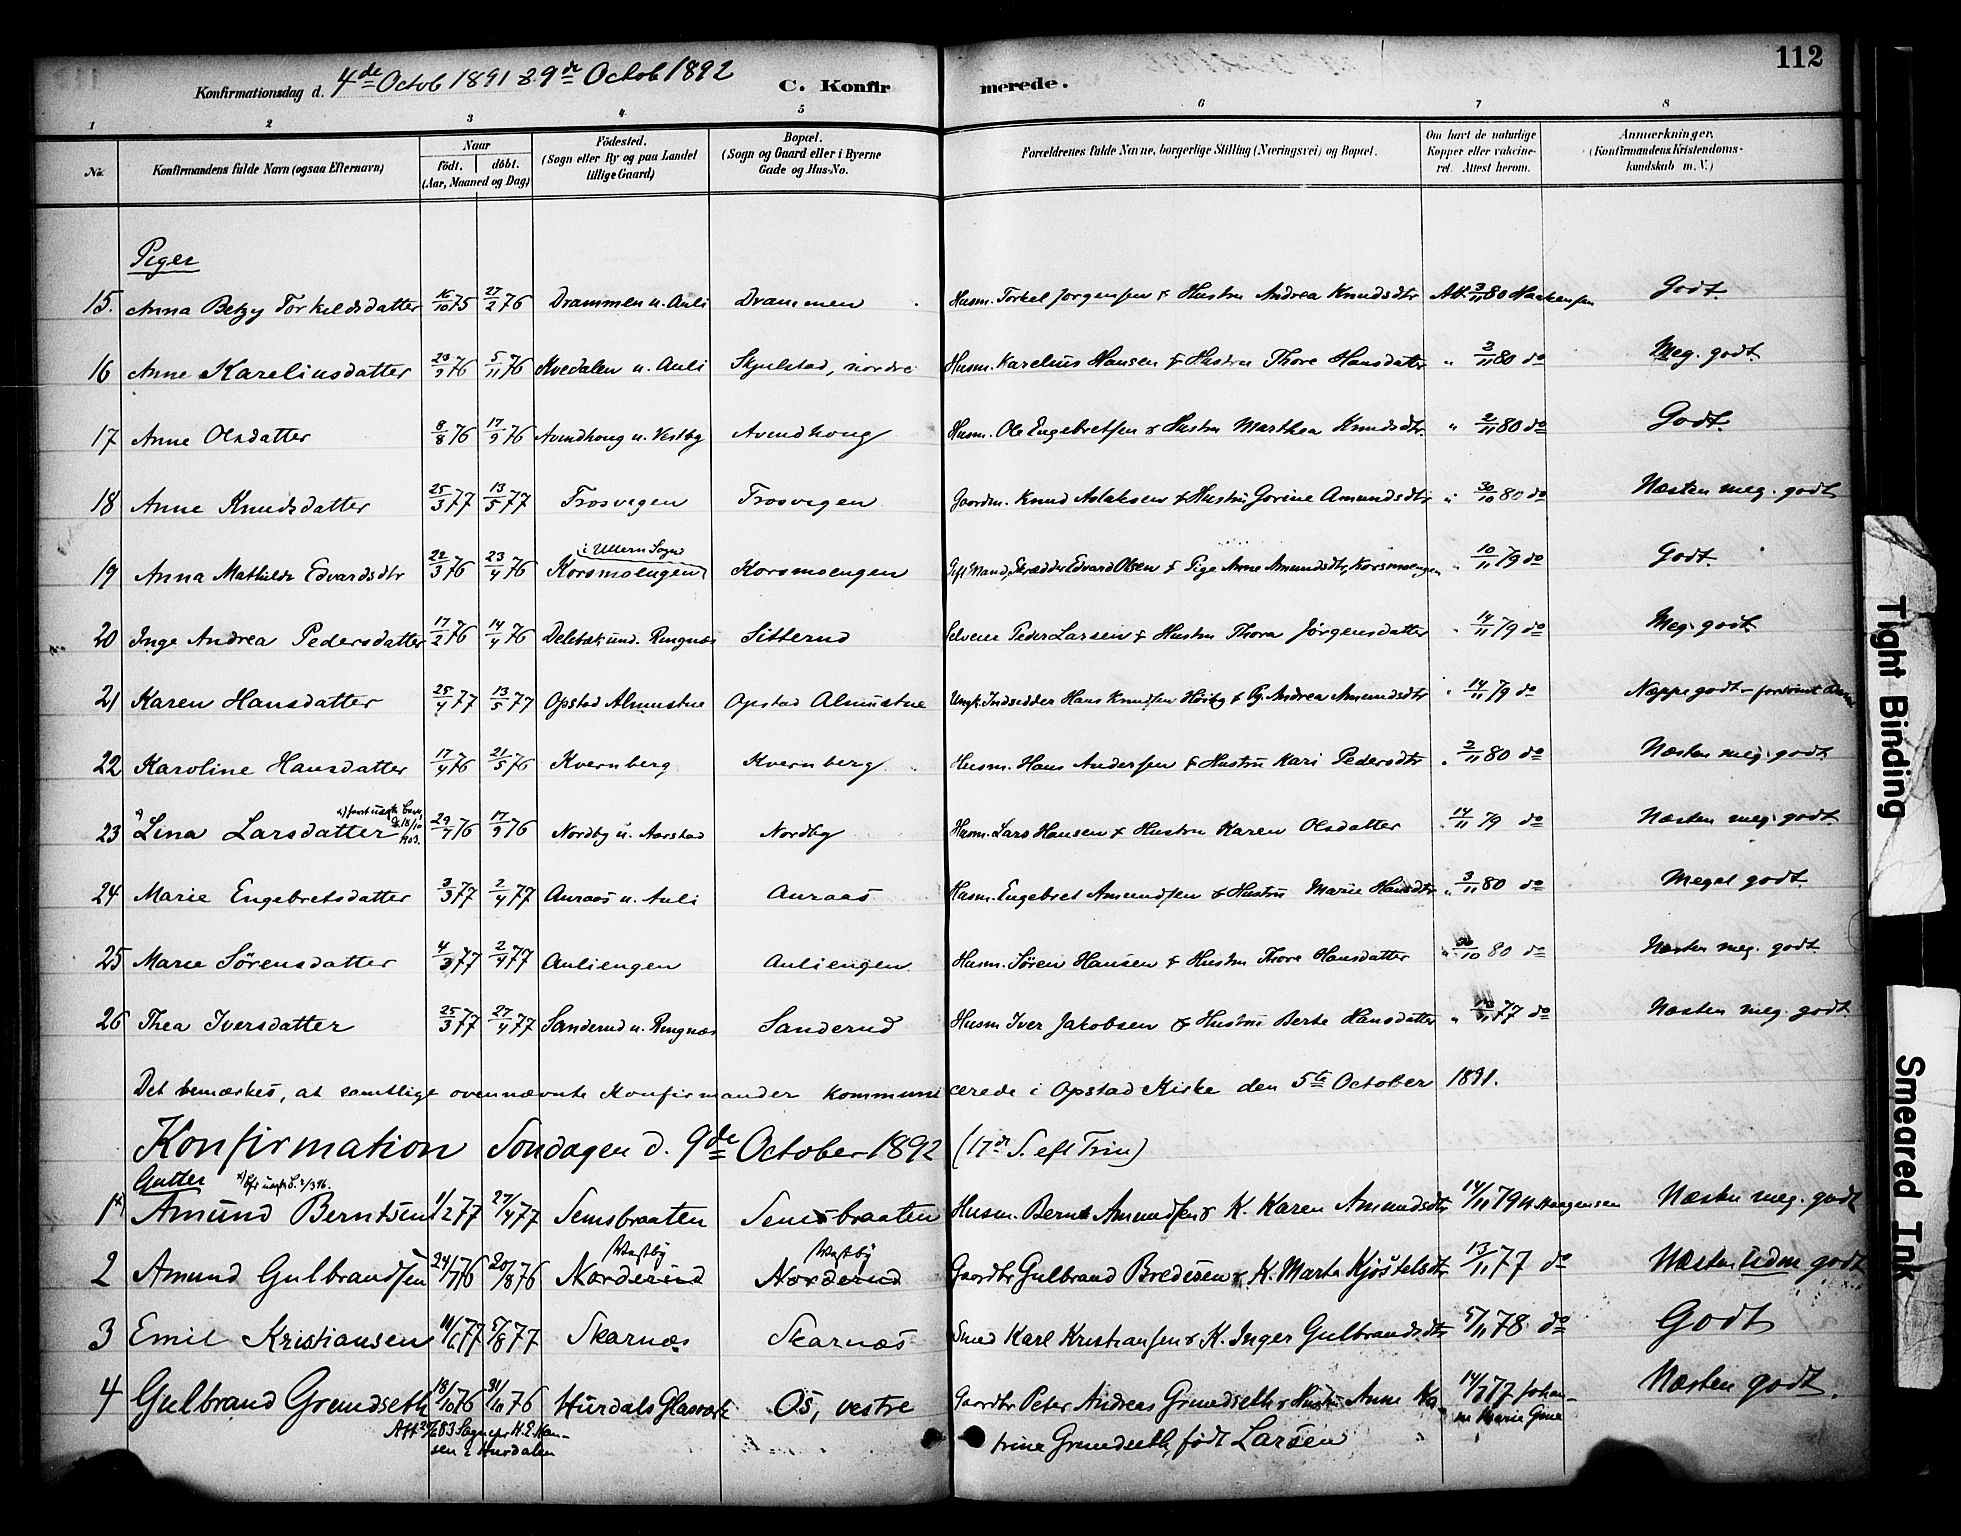 112
Konfirmationsdag d. 4de Octob 1891 & 9de Octob 1892 C. Konfirmerede.
1 2 3 4 5 6 7 8
No. Konfirmandens fulde Navn (ogsaa Efternavn) Naar født. døbt. (Aar, Maaned og Dag) Fødested. (Sogn eller By og paa Landet tillige Gaard) Bopæl. (Sogn og Gaard eller i Byerne Gade og Hus-No. Forældrenes fulde Navne, borgerlige Stilling (Næringsvei) og Bopæl. Om havt de naturlige Kopper eller vakcineret. Attest herom. Anmærkninger. (Konfirmandens Kristendomskundskab m. V.)
Piger
15. Anna Betzy Torkeldsdatter 16/10 75 27/2 76 Drammen u. Auli Drammen Husm. Torkel Jørgensen & Hustru Andrea Knudsdtr Att. 3/11 80 Haakensen Godt.
16 Anne Kareliusdatter 23/9 76 5/11 76 Kvedalen u. Auli Skjulstad, nordre Husm. Karelius Hansen & Hustru Thore Hansdatter " 2/11 80 do Meg. godt.
17 Anne Olsdatter 8/8 76 17/9 76 Avindhoug u. Vestby Avindhoug Husm. Ole Engebretsen & Hustru Marthea Knudsdtr. " 2/11 80 do Godt.
18 Anne Knudsdatter 25/3 77 13/5 77 Trosvigen Trosvigen Gaardm. Knud Aslaksen & Hustru Gorine Amundsdtr " 30/10 80 do Næsten meg. godt
19 Anna Mathilde Edvardsdtr 22/3 76 23/4 76 i Ullern Sogn Korsmoengen Korsmoengen Gift Mand, Skrædder Edvard Olsen & Pige Anne Amundsdtr, Korsmoengen " 10/11 79 do Godt.
20 Inge Andrea Pedersdatter 17/2 76 14/4 76 Delebæk und. Ringnæs Sitterud Selveier Peder Larsen & Hustru Thora Jørgensdatter " 14/11 79 do Meg. godt
21 Karen Hansdatter 25/4 77 13/5 77 Opstad Almustue Opstad Almustue Ungk. Indsidder Hans Knudsen Høiby & Pg. Andrea Amundsdtr " 14/11 79 do Neppe godt -
22 Karoline Hansdatter 17/4 76 21/5 76 Kvernberg Kvernberg Husm. Hans Andersen & Hustru Kari Pedersdtr " 2/11 80 do Næsten meg. godt.
23 x) Lina Larsdatter 29/7 76 17/9 76 Nordby u. Aarstad Nordby Husm. Lars Hansen & Hustru Karen Olsdatter " 14/11 79 do Næsten meg. godt.
24 Marie Engebretsdatter 3/3 77 2/4 77 Auraas u. Auli Auraas Husm. Engebret Amundsen & Hustru Marie Hansdtr " 3/11 80 do Meget godt.
25 Marie Sørensdatter 4/3 77 2/4 77 Auliengen Auliengen Husm. Søren Hansen & Hustru Thore Hansdatter " 30/10 80 do Næsten meg. godt.
26 Thea Iversdatter 25/3 77 27/4 77 Sanderud u. Ringnæs Sanderud Husm Iver Jakobsen & Hustru Berte Hansdatter " 77 do Næsten meg. godt.
Det bemærkes, at samtlige ovennævnte Konfirmander kommunicerede i Opstad Kirke den 5te October 1891.
Konfirmation Søndagen d. 9de October 1892 (17de S. eft Trin)
Gutter
1 x) Amund Berntsen 1/2 77 27/4 77 Semsbraaten Semsbraaten Husm. Bernt Amundsen & K. Karen Amundsdtr 14/11 79 Haagensen Næsten meg. godt
2 Amund Gulbrandsen 24/7 76 20/8 76 Vestby Norderud Vestby Norderud Gaardbr Gulbrand Bredesen & K. Marte Kjøstelsdtr 13/11 77 do Næsten udm. godt
3 Emil Kristiansen 14/6 77 5/8 77 Skarnæs Skarnæs Smed Karl Kristiansen & K. Inger Gulbrandsdtr 5/11 78 do Godt
4 Gulbrand Grundseth 18/10 76 31/10 76 Hurdals Glasværk Os, vestre Gaardbr Peter Andreas Grundseth & Hustru Anne Ka- 14/7 77 Johan-
trine Grundseth, født Larsen
ne Marie Grue
Næsten godt.
83 Sognepr H. E. Hansen i Hurdalen
Tight Binding
Smeared Ink